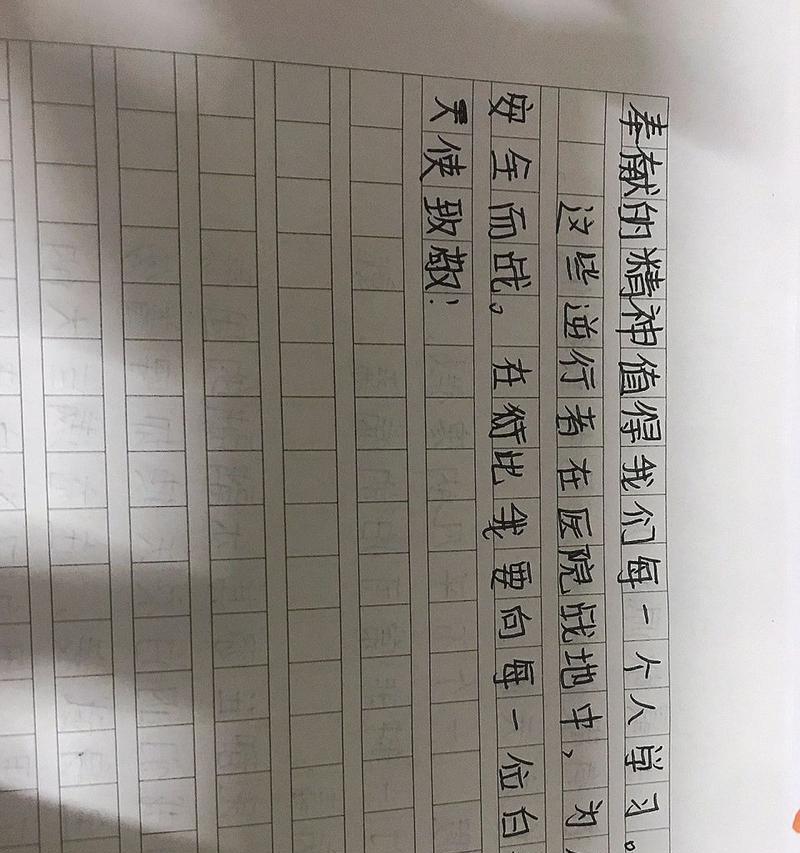 奉献的精神值得我们每一个人学习。
这些逆行者在医院战地中，为
安全而战。在此我要向每一位白
天使致敬！